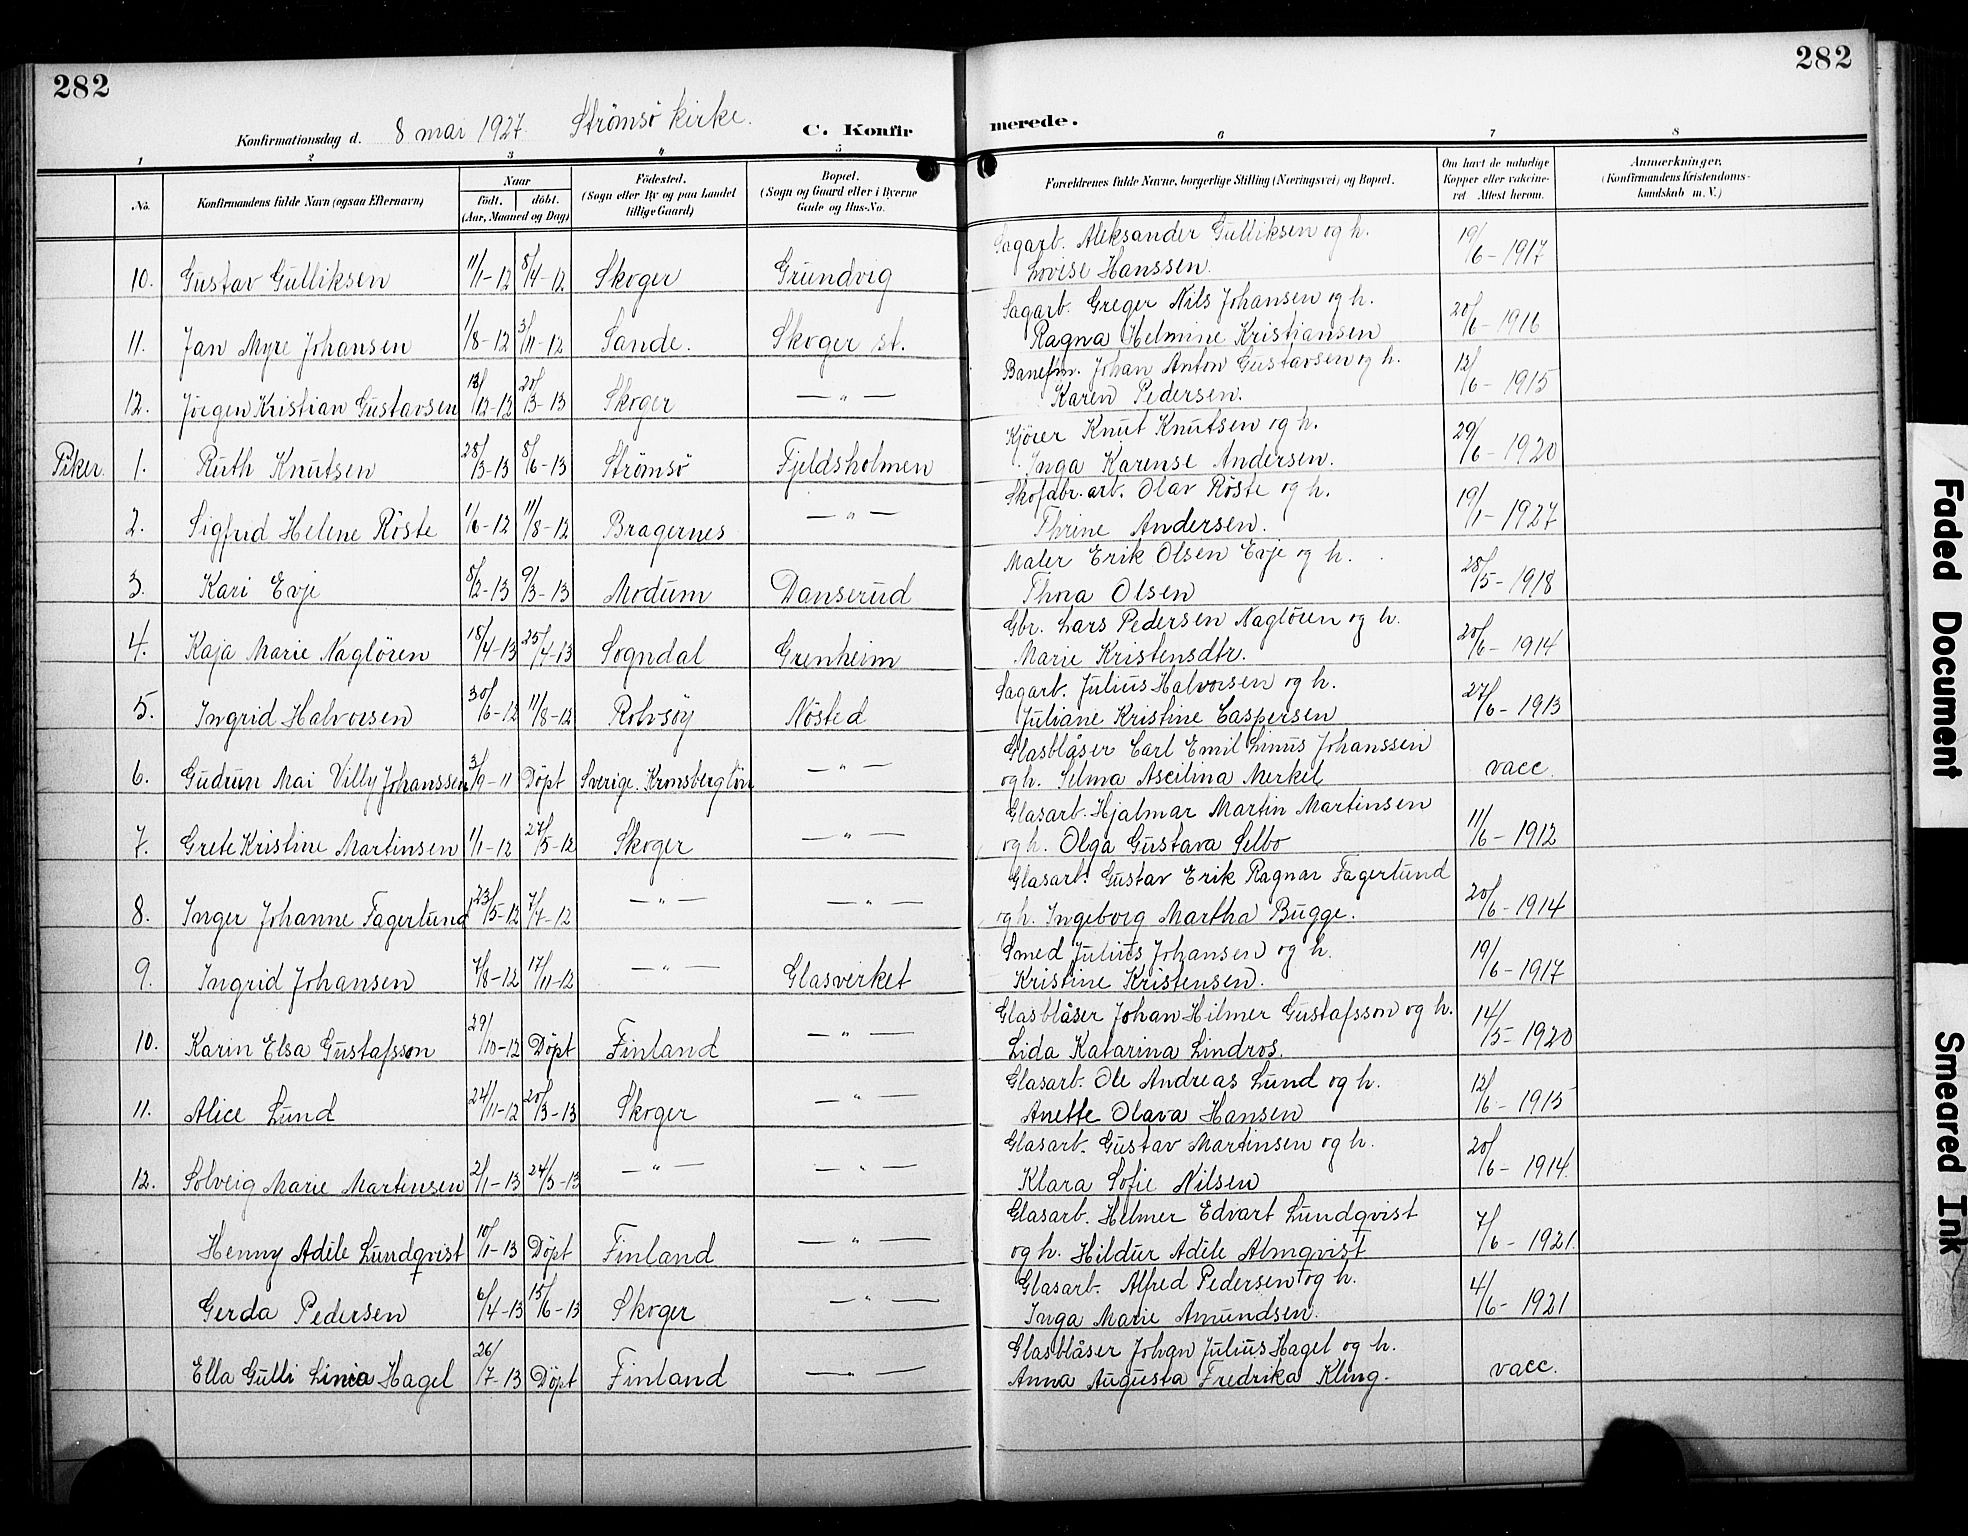 282
282
Konfirmationsdag d. 8 mai 1927. Strömsö kirke.
C. Konfirmerede.
1 2 3 4 5 6 7 8
No.
Konfirmandens fulde Navn (ogsaa Efternavn)
Naar
födt. döbt.
(Aar, Maaned og Dag)
Födested.
(Sogn eller By og paa Landet
tillige Gaard)
Bopæl.
(Sogn og Gaard eller i Byerne
Gade og Hus-No.
Forældrenes fulde Navne, borgerlige Stilling (Næringsvei) og Bopæl.
Om havt de naturlige
Kopper eller vakcine-
ret Attest herom.
Anmærkninger.
(Konfirmandens Kristendoms-
kundskab m. V.)
Sagarb. Aleksander Gulliksen og h.
10. Gustav Gulliksen 11/1-12 8/4-12 Skoger Grundvig Lovise Hanssen. 19/6-1917
Sagarb. Greger Nils Johansen og h.
11. Jan Myre Johansen 1/8-12 3/11-12 Sande. Skoger st. Ragna Helmine Kristiansen 20/6-1916
Banefm. Johan Anton Gustavsen og h.
12. Jörgen Kristian Gustavsen 13/12-12 20/3-13 Skoger — " — Karen Pedersen. 12/6-1915
Kjörer Knut Knutsen og h.
Piker. 1. Ruth Knutsen 28/3-13 8/6-13 Strömsö Fjeldsholmen Inga Karense Andersen. 29/6-1920
Skofabr. arb. Olav Röste og h.
2. Sigfrid Helene Röste 1/6-12 11/8-12 Bragernes — " — Thrine Andersen. 19/1-1927
Maler Erik Olsen Evje og h.
3. Kari Evje 8/2-13 9/3-13 Modum Danserud Thora Olsen 28/5-1918
Gbr. Lars Pedersen Naglören og h.
4. Kaja Marie Naglören 18/4-13 25/4-13 Sogndal Grenheim Marie Kristensdtr. 20/6-1914
Sagarb. Julius Halvorsen og h.
5. Ingrid Halvorsen 30/6-12 11/8-12 Rolvsöy Nösted Juliane Kristine Caspersen 27/6-1913
Glasblåser Carl Emil Linus Johanssen
6. Gudrun Mai Villy Johanssen 3/9-11 Döpt Sverige. Kronsberglön — " — og h. Selma Ascilina Merkel vacc.
Glasarb. Hjalmar Martin Martinsen
7. Grete Kristine Martinsen 1/1-12 27/5-12 Skoger — " — og h. Olga Gustava Selbo 11/6-1912
Glasarb. Gustav Erik Ragnar Fagerlund
8. Inger Johanne Fagerlund 23/5-12 7/4-12 — " — — " — og h. Ingeborg Martha Bugge. 20/6-1914
Smed Julius Johansen og h.
9. Ingrid Johansen 7/8-12 17/11-12 — " — Glasverket Kristine Kristensen. 19/6-1917
Glasblåser Johan Hilmer Gustafsson og h.
10. Karin Elsa Gustafsson 29/10-12 Döpt Finland — " — Lida Katarina Lindros. 14/5-1920
Glasarb. Ole Andreas Lund og h.
11. Alice Lund 24/11-12 20/3-13 Skoger — " — Anette Olava Hansen 12/6-1915
Glasarb. Gustav Martinsen og h.
12. Solveig Marie Martinsen 2/1-13 24/3-13 — " — — " — Klara Sofie Nilsen 20/6-1914.
Glasarb. Helmer Edvart Lundqvist
Henny Adéle Lundqvist 10/1-13 Döpt Finland — " — og h. Hildur Adéle Almqvist 7/6-1921.
Glasarb. Alfred Pedersen og h.
Gerda Pedersen 6/4-13 15/6-13 Skoger — " — Inga Marie Amundsen. 4/6-1921
Glasblåser Johan Julius Hagel og h.
Ella Gulli Linea Hagel 26/7-13 Döpt Finland — " — Anna Augusta Fredrika Kling. vacc.
Faded Document
Smeared Ink